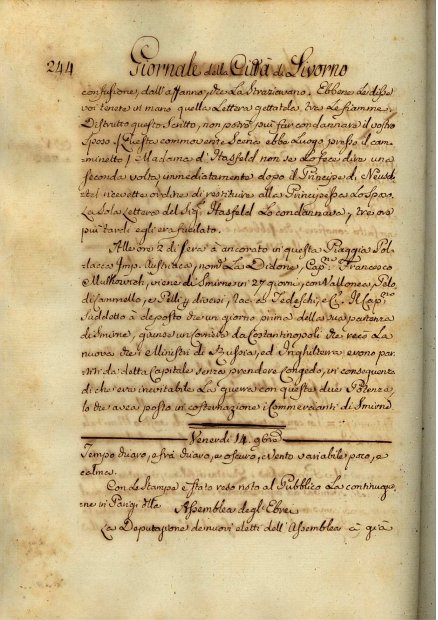 244 Giornale della Città di Livorno
confusione, dall'affanno, che La straziavano. Ebbene Le disse
voi tenete in mano quella Lettera gettatela tra Le fiamme.
Distrutto questo Scritto, non potrò più far condannare il vostro
Sposo. (Questa commovente Scena ebbe Luogo presso il cam-
minetto) Madama d'Hasfeld non se Lo fece dire una
seconda volta, immediatamente dopo il Principe di Neuf-
chtel ricevette ordine di restituire alla Principessa Lo Sposo.
La sola Lettera del Sig.r Hasfeld Lo condannava, tre ore
più tardi egli era fucilato.
Alle ore 2 di sera à ancorato in questa Piaggia Pol-
lacca Imp. Austriaca, nom.ta La Didone, Cap.no Francesco
viene di Smirne in 27 giorni, con Vallonea, Pelo
di Cammello, e Pelli diversi, rac. a Tedeschi, e C. Il Cap.no
Suddetto à deposto che un giorno prima della sua partenza
di Smirne, giunse un Corriere da Costantinopoli che recò La
nuova che i Ministri di Russia, ed Inghilterra erono par-
titi da detta Capitale senza prendere Congedo, in conseguenza
di che era inevitabile La guerra con queste due Potenze,
Lo che avea posto in costernazione i Commercianti di Smirne
Venerdi 14. 9bre
Tempo chiaro, e frà chiaro, e oscuro, e vento variabile poco, e
calma.
Con Le Stampe è stato reso noto al Pubblico La continuazio-
ne in Parigi della Assemblea degl'Ebrei
La Deputazione de nuovi eletti dell'Assemblea à già